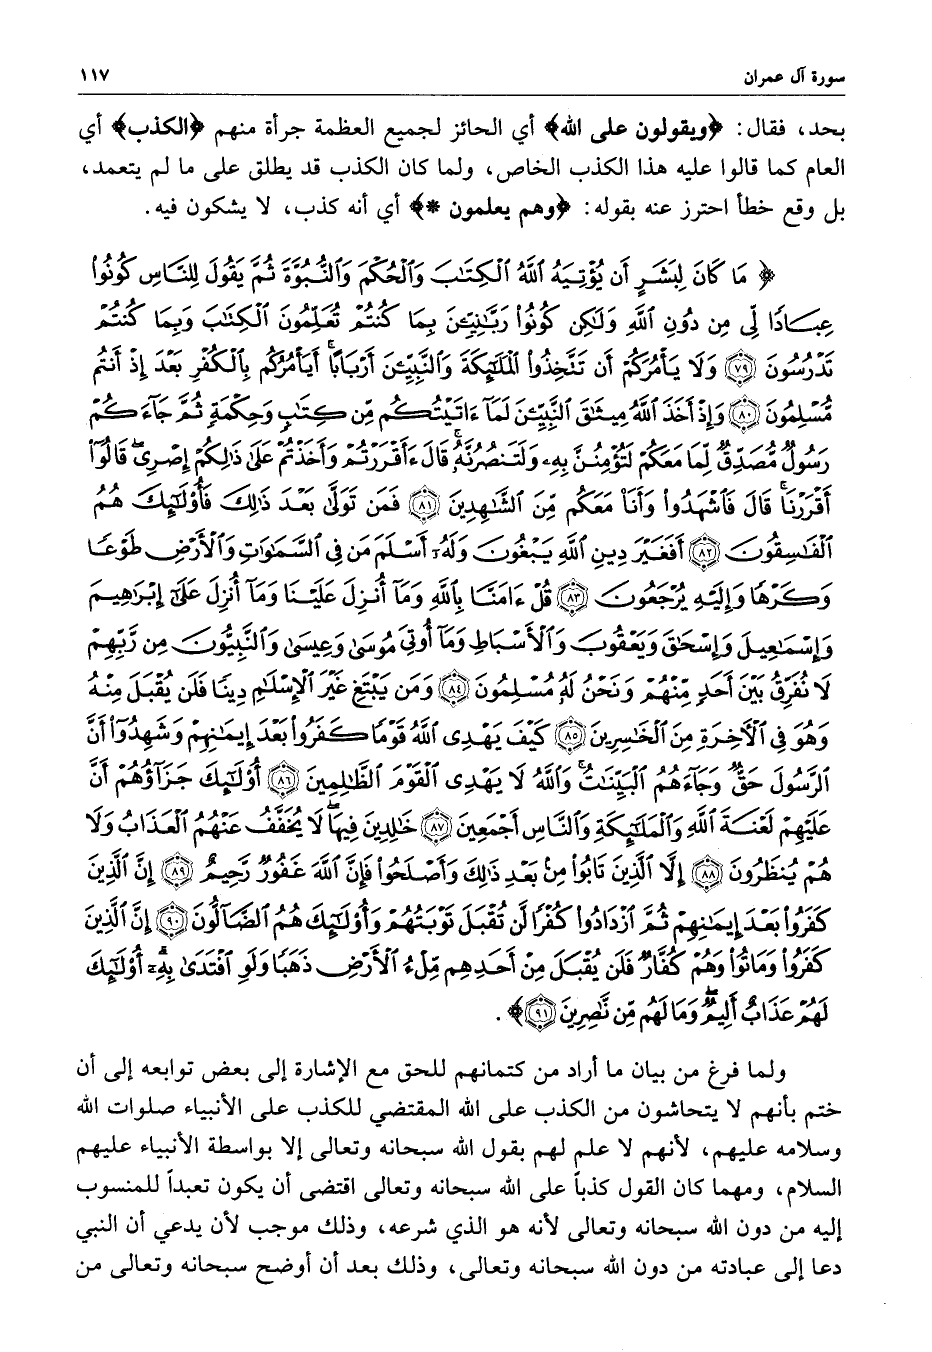 سورة آل عمران ١١٧
بحد، فقال: ﴿ويقولون على الله﴾ أي الحائز لجميع العظمة جرأة منهم ﴿الكذب﴾ أي
العام كما قالوا عليه هذا الكذب الخاص، ولما كان الكذب قد يطلق على ما لم يتعمد،
بل وقع خطأ احترز عنه بقوله: ﴿وهم يعلمون *﴾ أي أنه كذب، لا يشكون فيه.
﴿ مَا كَانَ لِبَشَرٍ أَن يُؤْتِيَهُ ٱللَّهُ ٱلْكِتَٰبَ وَٱلْحُكْمَ وَٱلنُّبُوَّةَ ثُمَّ يَقُولَ لِلنَّاسِ كُونُوا۟
عِبَادًا لِّى مِن دُونِ ٱللَّهِ وَلَٰكِن كُونُوا۟ رَبَّٰنِيِّۦنَ بِمَا كُنتُمْ تُعَلِّمُونَ ٱلْكِتَٰبَ وَبِمَا كُنتُمْ
تَدْرُسُونَ ﴿٧٩﴾ وَلَا يَأْمُرَكُمْ أَن تَتَّخِذُوا۟ ٱلْمَلَٰٓئِكَةَ وَٱلنَّبِيِّۦنَ أَرْبَابًا ۗ أَيَأْمُرُكُم بِٱلْكُفْرِ بَعْدَ إِذْ أَنتُم
مُّسْلِمُونَ ﴿٨٠﴾ وَإِذْ أَخَذَ ٱللَّهُ مِيثَٰقَ ٱلنَّبِيِّۦنَ لَمَآ ءَاتَيْتُكُم مِّن كِتَٰبٍ وَحِكْمَةٍ ثُمَّ جَآءَكُمْ
رَسُولٌ مُّصَدِّقٌ لِّمَا مَعَكُمْ لَتُؤْمِنُنَّ بِهِۦ وَلَتَنصُرُنَّهُۥ ۚ قَالَ ءَأَقْرَرْتُمْ وَأَخَذْتُمْ عَلَىٰ ذَٰلِكُمْ إِصْرِى ۖ قَالُوٓا۟
أَقْرَرْنَا ۚ قَالَ فَٱشْهَدُوا۟ وَأَنَا۠ مَعَكُم مِّنَ ٱلشَّٰهِدِينَ ﴿٨١﴾ فَمَن تَوَلَّىٰ بَعْدَ ذَٰلِكَ فَأُو۟لَٰٓئِكَ هُمُ
ٱلْفَٰسِقُونَ ﴿٨٢﴾ أَفَغَيْرَ دِينِ ٱللَّهِ يَبْغُونَ وَلَهُۥٓ أَسْلَمَ مَن فِى ٱلسَّمَٰوَٰتِ وَٱلْأَرْضِ طَوْعًا
وَكَرْهًا وَإِلَيْهِ يُرْجَعُونَ ﴿٨٣﴾ قُلْ ءَامَنَّا بِٱللَّهِ وَمَآ أُنزِلَ عَلَيْنَا وَمَآ أُنزِلَ عَلَىٰٓ إِبْرَٰهِيمَ
وَإِسْمَٰعِيلَ وَإِسْحَٰقَ وَيَعْقُوبَ وَٱلْأَسْبَاطِ وَمَآ أُوتِىَ مُوسَىٰ وَعِيسَىٰ وَٱلنَّبِيُّونَ مِن رَّبِّهِمْ
لَا نُفَرِّقُ بَيْنَ أَحَدٍ مِّنْهُمْ وَنَحْنُ لَهُۥ مُسْلِمُونَ ﴿٨٤﴾ وَمَن يَبْتَغِ غَيْرَ ٱلْإِسْلَٰمِ دِينًا فَلَن يُقْبَلَ مِنْهُ
وَهُوَ فِى ٱلْءَاخِرَةِ مِنَ ٱلْخَٰسِرِينَ ﴿٨٥﴾ كَيْفَ يَهْدِى ٱللَّهُ قَوْمًا كَفَرُوا۟ بَعْدَ إِيمَٰنِهِمْ وَشَهِدُوٓا۟ أَنَّ
ٱلرَّسُولَ حَقٌّ وَجَآءَهُمُ ٱلْبَيِّنَٰتُ ۚ وَٱللَّهُ لَا يَهْدِى ٱلْقَوْمَ ٱلظَّٰلِمِينَ ﴿٨٦﴾ أُو۟لَٰٓئِكَ جَزَآؤُهُمْ أَنَّ
عَلَيْهِمْ لَعْنَةَ ٱللَّهِ وَٱلْمَلَٰٓئِكَةِ وَٱلنَّاسِ أَجْمَعِينَ ﴿٨٧﴾ خَٰلِدِينَ فِيهَا لَا يُخَفَّفُ عَنْهُمُ ٱلْعَذَابُ وَلَا
هُمْ يُنظَرُونَ ﴿٨٨﴾ إِلَّا ٱلَّذِينَ تَابُوا۟ مِنۢ بَعْدِ ذَٰلِكَ وَأَصْلَحُوا۟ فَإِنَّ ٱللَّهَ غَفُورٌ رَّحِيمٌ ﴿٨٩﴾ إِنَّ ٱلَّذِينَ
كَفَرُوا۟ بَعْدَ إِيمَٰنِهِمْ ثُمَّ ٱزْدَادُوا۟ كُفْرًا لَّن تُقْبَلَ تَوْبَتُهُمْ وَأُو۟لَٰٓئِكَ هُمُ ٱلضَّآلُّونَ ﴿٩٠﴾ إِنَّ ٱلَّذِينَ
كَفَرُوا۟ وَمَاتُوا۟ وَهُمْ كُفَّارٌ فَلَن يُقْبَلَ مِنْ أَحَدِهِم مِّلْءُ ٱلْأَرْضِ ذَهَبًا وَلَوِ ٱفْتَدَىٰ بِهِۦٓ ۗ أُو۟لَٰٓئِكَ
لَهُمْ عَذَابٌ أَلِيمٌ وَمَا لَهُم مِّن نَّٰصِرِينَ ﴿٩١﴾ ﴾ .
ولما فرغ من بيان ما أراد من كتمانهم للحق مع الإشارة إلى بعض توابعه إلى أن
ختم بأنهم لا يتحاشون من الكذب على الله المقتضي للكذب على الأنبياء صلوات الله
وسلامه عليهم، لأنهم لا علم لهم بقول الله سبحانه وتعالى إلا بواسطة الأنبياء عليهم
السلام، ومهما كان القول كذباً على الله سبحانه وتعالى اقتضى أن يكون تعبداً للمنسوب
إليه من دون الله سبحانه وتعالى لأنه هو الذي شرعه، وذلك موجب لأن يدعي أن النبي
دعا إلى عبادته من دون الله سبحانه وتعالى، وذلك بعد أن أوضح سبحانه وتعالى من